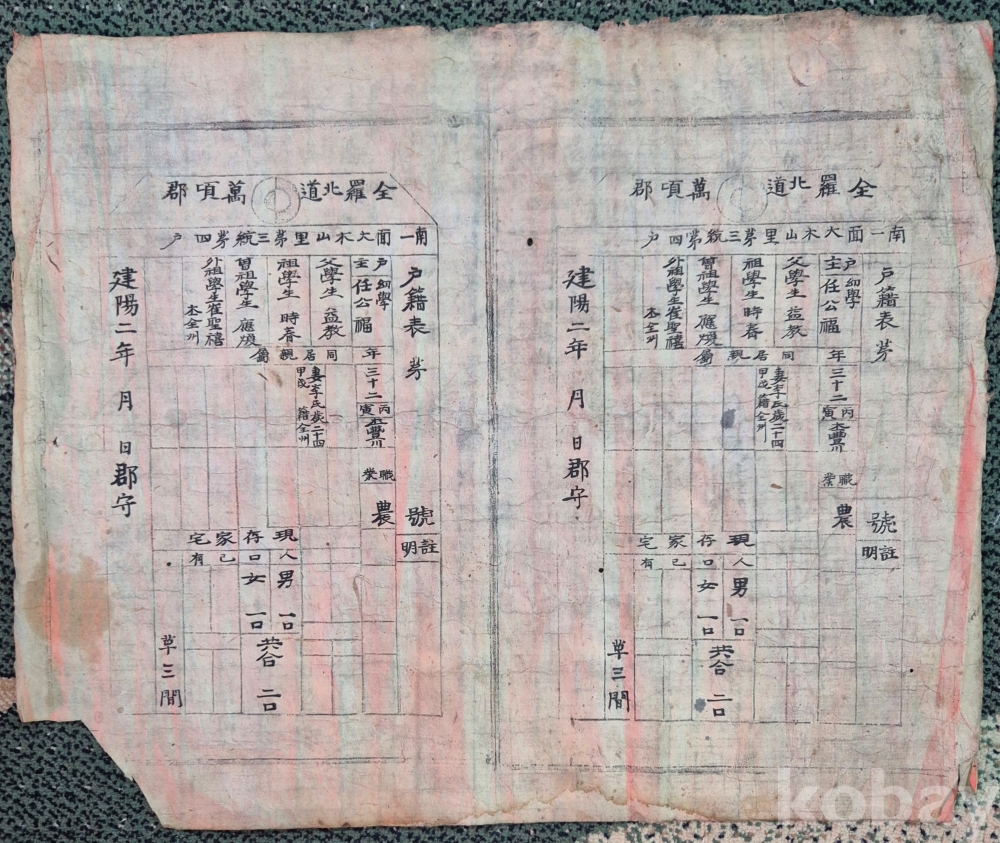 全羅北道萬頃郡
南一面大木山里苐三統苐四戶
戶籍表 苐 號
註明
戶主 幼學 任公福
年三十二 丙寅 本豊川
職業 農
父學生 益教
祖學生 時春
曾祖學生 應煥
外祖學生崔聖禧
本全州
同居親屬
妻李氏歲二十四
甲戌 籍全州
現存人口
男 一口
女 一口
共合 二口
家宅
己有
草三間
建陽二年 月 日郡守
全羅北道萬頃郡
南一面大木山里苐三統苐四戶
戶籍表 苐 號
註明
戶主 幼學 任公福
年三十二 丙寅 本豊川
職業 農
父學生 益教
祖學生 時春
曾祖學生 應煥
外祖學生崔聖禧
本全州
同居親屬
妻李氏歲二十四
甲戌 籍全州
現存人口
男 一口
女 一口
共合 二口
家宅
己有
草三間
建陽二年 月 日郡守
kobay